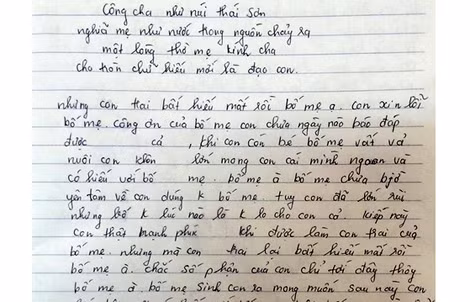 Công cha như núi thái sơn
nghĩa mẹ như nước trong nguồn chảy ra
một lòng thờ mẹ kính cha
cho tròn chữ hiếu mới là đạo con.
nhưng con trai bất hiếu mất rồi bố mẹ ạ. con xin lỗi
bố mẹ. công ơn của bố mẹ con chưa ngày nào báo đáp
được cả, khi con còn bé bố mẹ vất vả
nuôi con khôn lớn mong con cái mình ngoan và
có hiếu với bố mẹ. bố mẹ à bố mẹ chưa bjờ
yên tâm về con đúng k bố mẹ tuy con đã lớn rùi
nhưng bố k lúc nào là k lo cho con cả. kiếp này
con thật hạnh phúc khi được làm con trai của
bố mẹ. nhưng mà con trai lại bất hiếu mất rồi
bố mẹ à. chắc số phận của con chỉ tới đây thôi
bố mẹ à. bố mẹ sinh con ra mong muốn sau này con